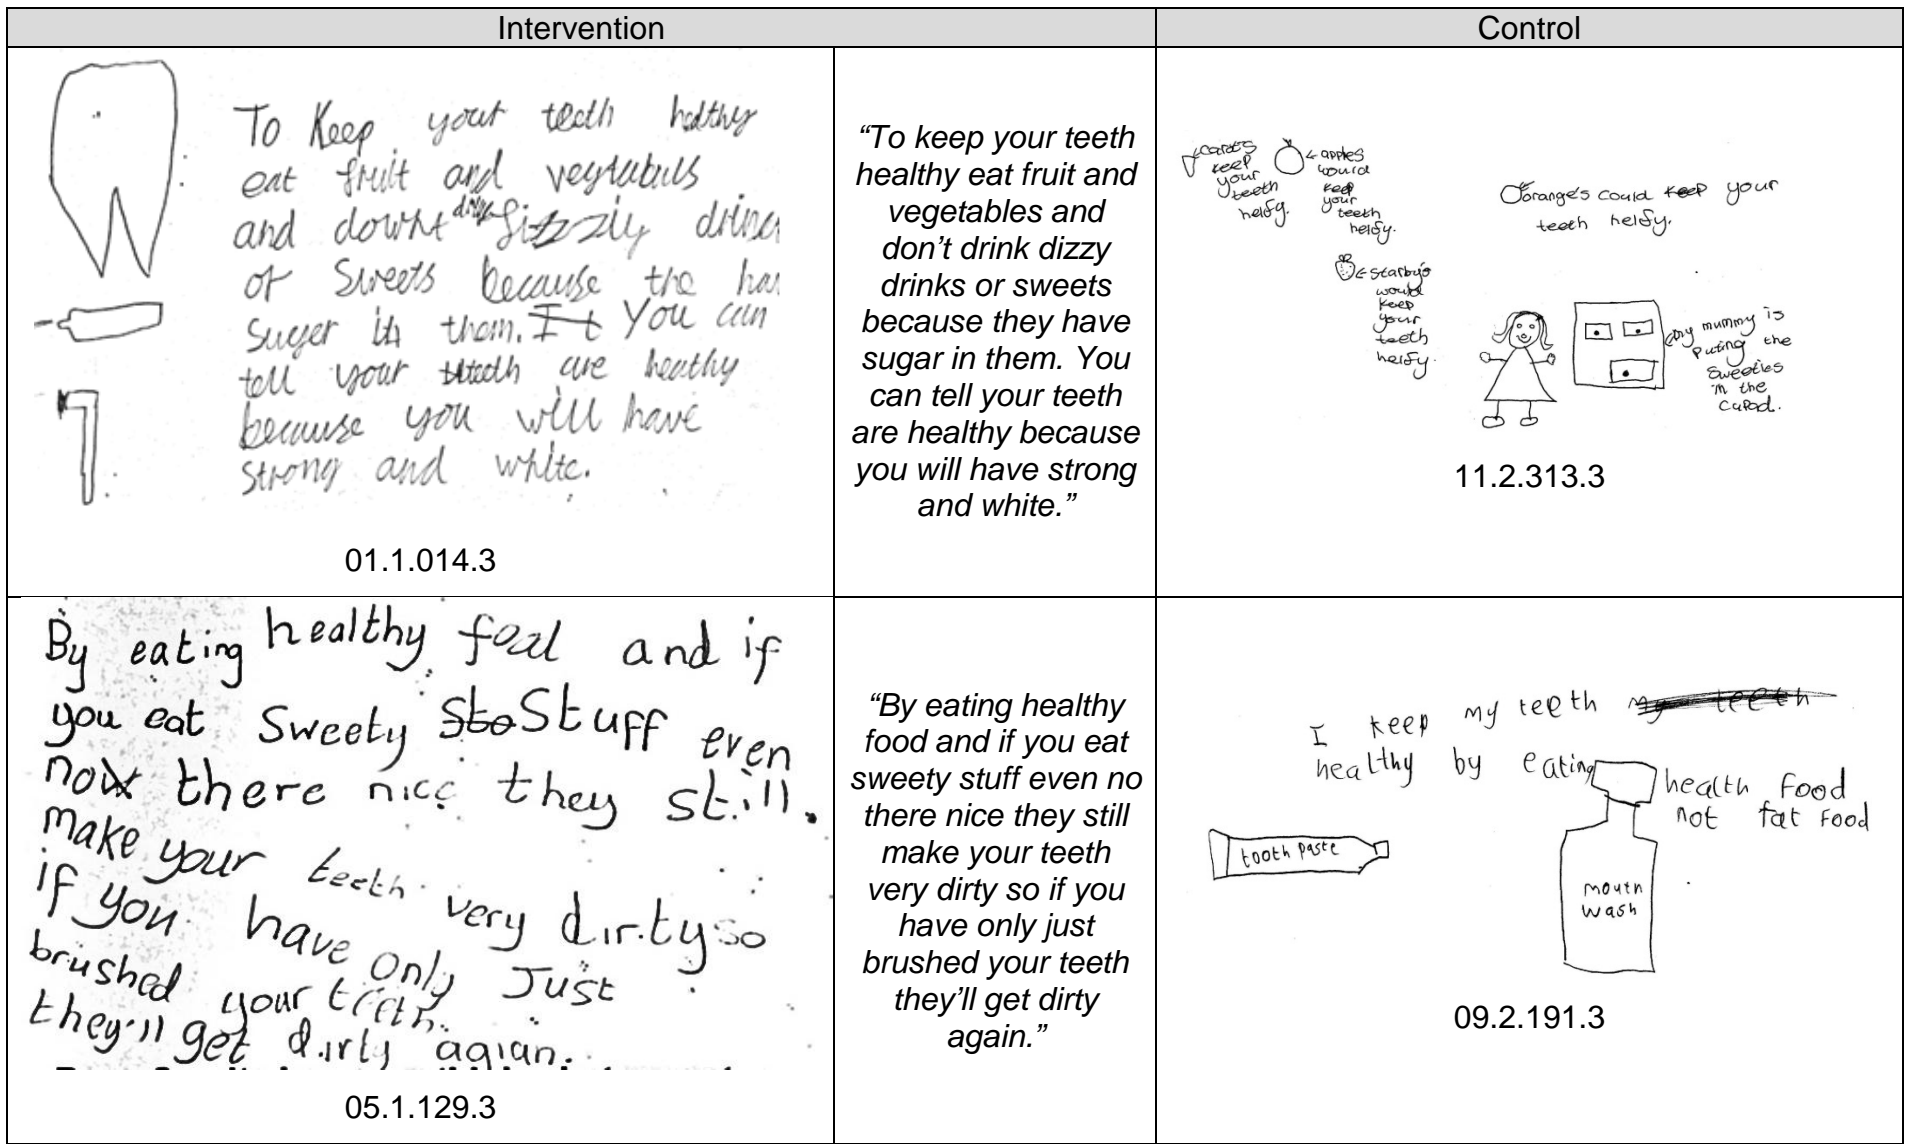 Intervention
Control
To Keep your teeth helthy
eat fruit and vegtabuls
and downt drink fizzly drincs
of Sweets because the hav
Suger in them. It You can
tell your teeth are heathy
because you will have
strong and white.
01.1.014.3
“To keep your teeth
healthy eat fruit and
vegetables and
don’t drink dizzy
drinks or sweets
because they have
sugar in them. You
can tell your teeth
are healthy because
you will have strong
and white.”
carots
keep
your
teeth
helfy.
apples
would
keep
your
teeth
helfy.
orange's could keep your
teeth helfy.
starby's
would
keep
your
teeth
helfy.
my mummy is
puting the
sweeties
in the
cupod.
11.2.313.3
By eating healthy food and if
you eat Sweety Sto Stuff even
now there nice they still.
make your teeth very dirty so
if you have only Just
brushed your teeth.
they'll get dirty agian.
05.1.129.3
“By eating healthy
food and if you eat
sweety stuff even no
there nice they still
make your teeth
very dirty so if you
have only just
brushed your teeth
they’ll get dirty
again.”
I keep my teeth my teeth
healthy by eating health food
not fat food
tooth paste
mouth
wash
09.2.191.3